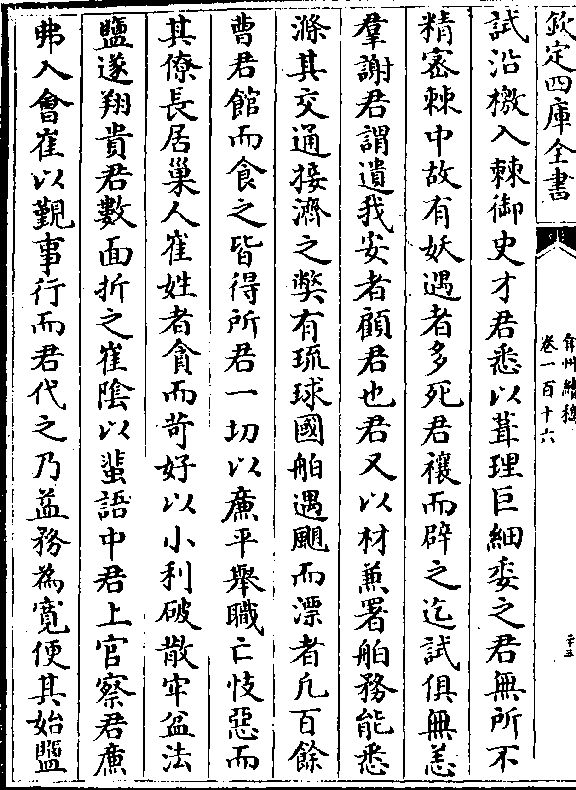 欽定四庫全書
弇州續稿
卷一百十六
二十五
試沿檄入棘御史才君悉以葺理巨細委之君無所不
精密棘中故有妖遇者多死君禳而辟之迄試俱無恙
羣謝君謂遺我安者顧君也君又以材兼署舶務能悉
滌其交通接濟之弊有琉球國舶遇颶而漂者凡百餘
曹君館而食之皆得所君一切以廉平舉職亡忮惡而
其僚長居巢人崔姓者貪而苛好以小利破散牢盆法
鹽遂翔貴君數面折之崔陰以蜚語中君上官察君廉
弗入會崔以覲事行而君代之乃益務為寛便其始鹽